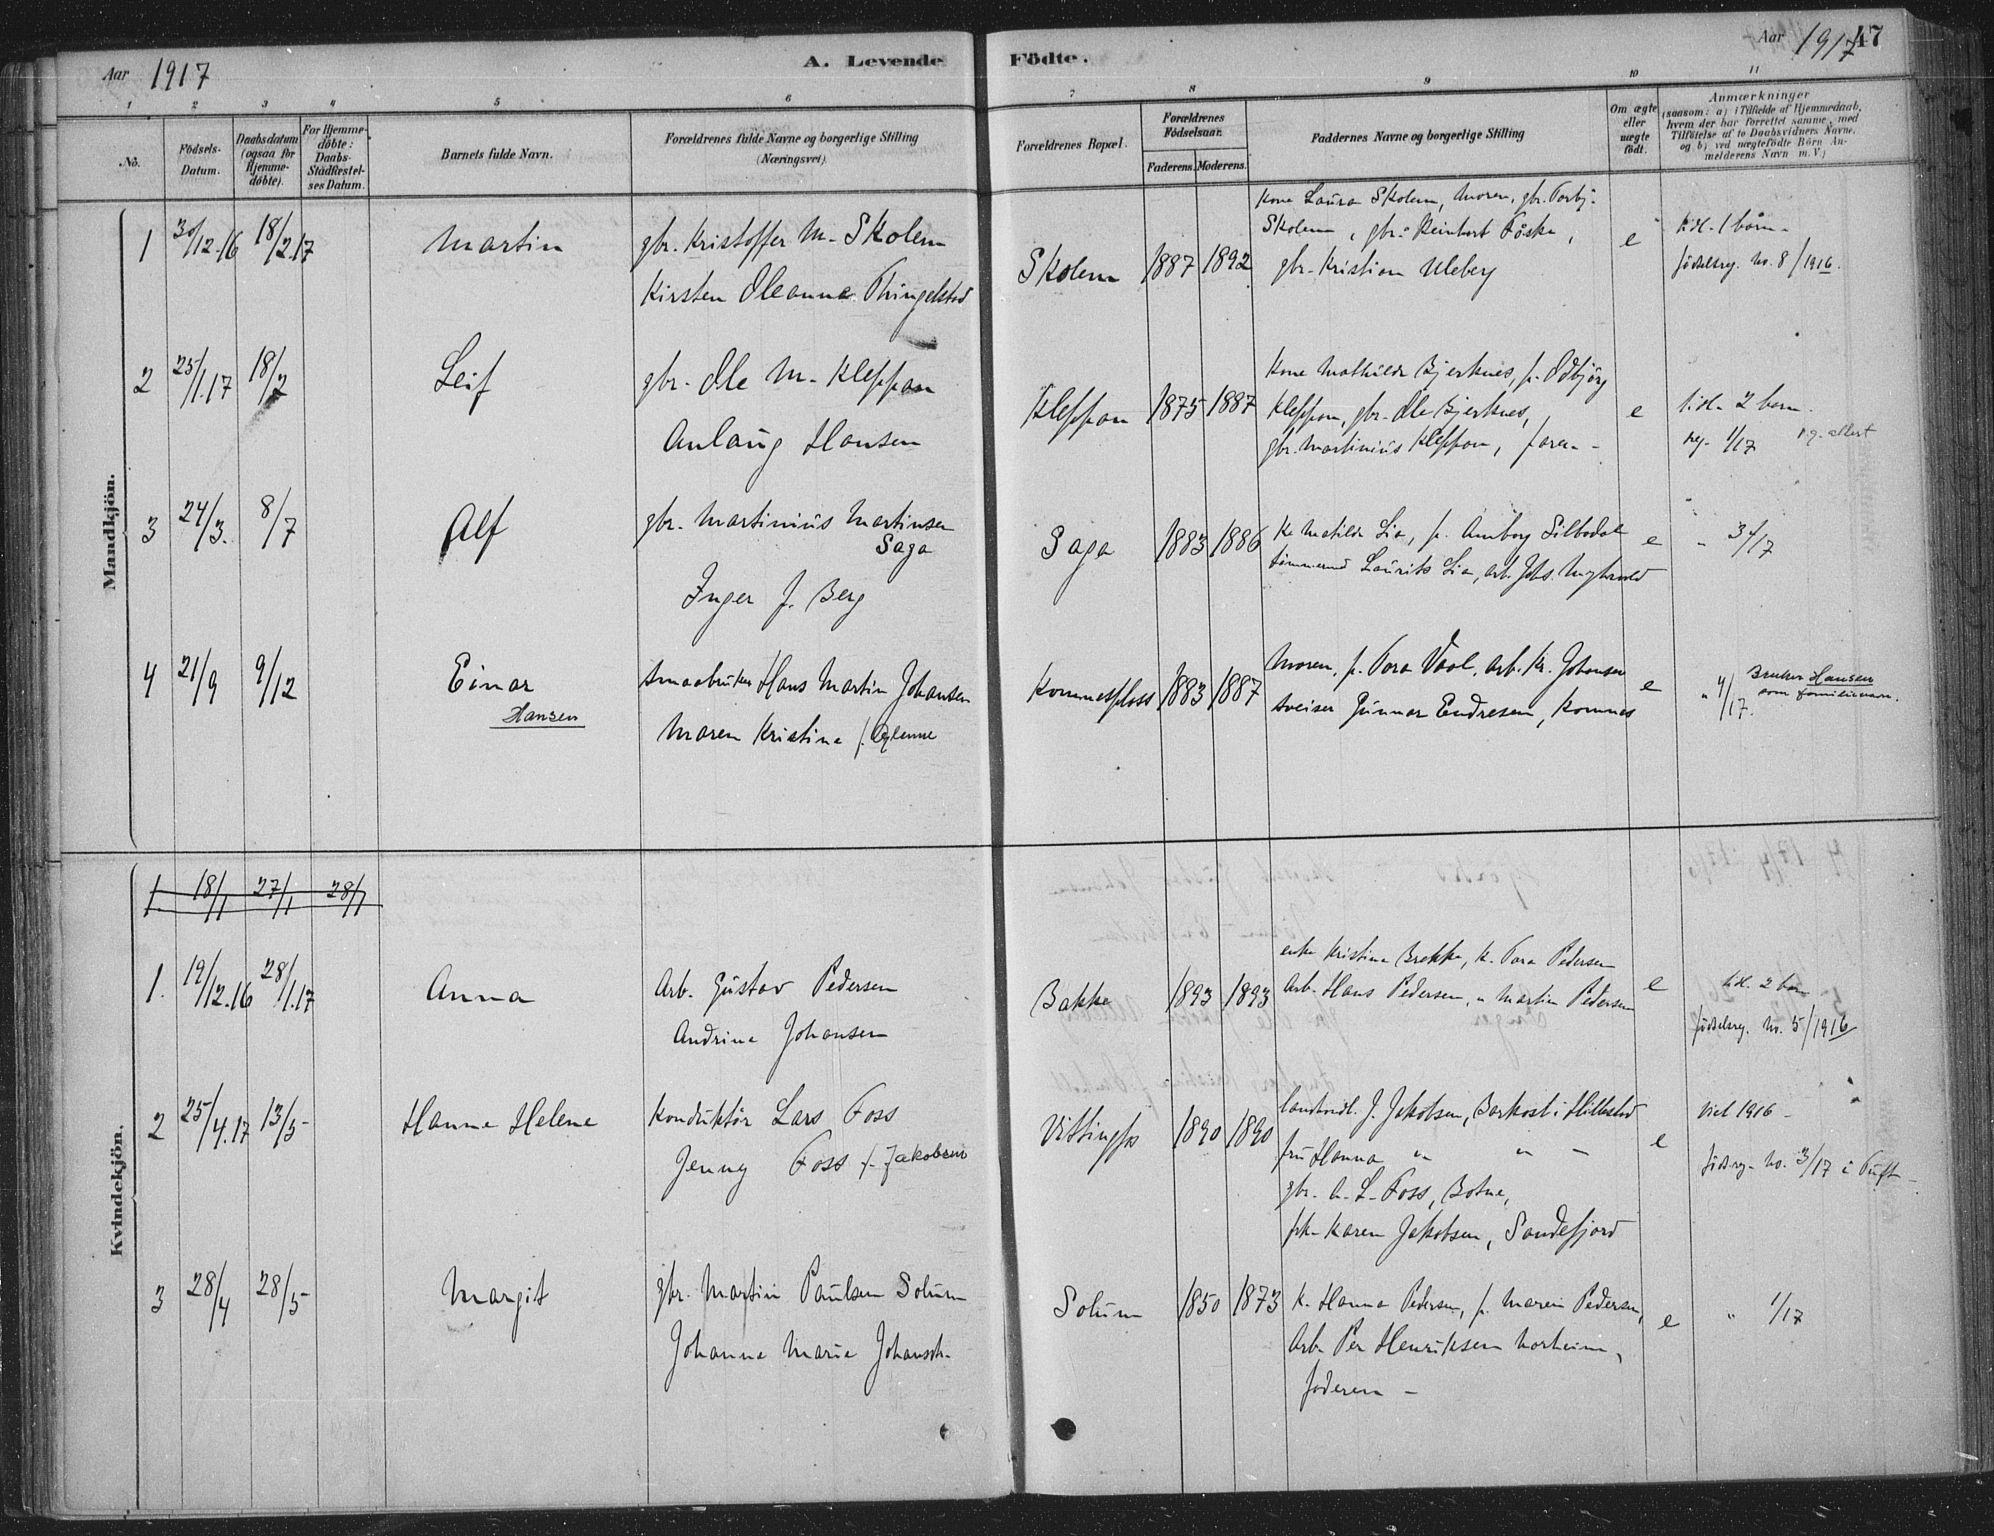 Aar 1917
A. Levende Födte.
Aar 1917
47
1 2 3 4 5 6 7 8 9 10 11
No.
Födsels-Datum.
Daabsdatum (ogsaa for Hjemme-döbte).
For Hjemme-döbte: Daabs-Stadfæstel-ses Datum.
Barnets fulde Navn.
Forældrenes fulde Navne og borgerlige Stilling (Næringsvei).
Forældrenes Bopæl.
Forældrenes Födselsaar.
Faderens. Moderens.
Faddernes Navne og borgerlige Stilling
Om ægte eller uægte födt.
Anmærkninger
(saasom: a) i Tilfælde af Hjemmedaab, hvem der har forrettet samme, med Tilföielse af to Daabsvidners Navne, og b) ved uægtefödte Börn An-melderens Navn m. V.)
Mandkjön.
1 30/12.16 18/2.17 Martin
gbr. Kristoffer M. Skolem
Kirsten Oleanna Thingelstad
Skolem 1887 1892
Kone Laura Skolem, moren, gbr. Torbj.
Skolem, gbr. Reinhart Fåske,
gbr. Kristian Uleberg
e
tidl. 1 barn
födselsreg. No. 8/1916.
2 25/1.17 18/2 Leif
gbr. Ole M. Kleppan
Anlaug Hansen
Kleppan 1875 1887
Kone Mathilde Bjerknes, p. Odbjörg
Kleppan, gbr. Ole Bjerknes,
gbr. Martinius Kleppan, faren
e
tidl. 2 barn.
reg. 1/17
3 24/3. 8/7 Alf
gbr. Martinius Martinsen
Saga
Inger f. Berg
Saga 1883 1886
Ke Matilde Lia, p. Amborg Silbodal
tömmermd Laurits Lia, arb. Johs. Myhrvold
e
" 3/17
4 21/9 9/12 Einar
Hansen
Smaabruker Hans Martin Johansen
Maren Kristine f. Oglenne
Kommesfloss 1883 1887
Moren, p. Tora Vaal, arb. Kr. Johansen
sveiser Gunnar Endresen, Komnes
e
" 4/17.
Bruker Hansen
som familienavn.
Kvindekjön.
1. 18/1 27/1 28/1
1. 19/12.16 28/1.17 Anna
Arb. Gustav Pedersen
Andrine Johansen
Bakke 1893 1893
enke Kristine Brekke, k. Tora Pedersen
Arb. Hans Pedersen, " Martin Pedersen
e
tidl. 2 barn
födselsreg. No. 5/1916
2 25/4.17 13/5 Hanne Helene
Konduktör Lars Foss
Jenny Foss f. Jakobsen
Vittingfos 1890 1890
landhandl. J. Jakobsen, Barkost i Hillestad
fru Hanna " " "
gbr. A. L. Foss, Botne,
frk. Karen Jakobsen, Sandefjord
e
Viet 1916
födsreg. No. 3/17 i Tuft
3 28/4 28/5 Margit
gbr. Martin Paulsen Solum
Johanne Marie Johansdt.
Solum 1850 1873
K. Hanna Pedersen, p. Maren Pedersen,
Arb. Per Henriksen Norheim,
faderen
e
" 1/17